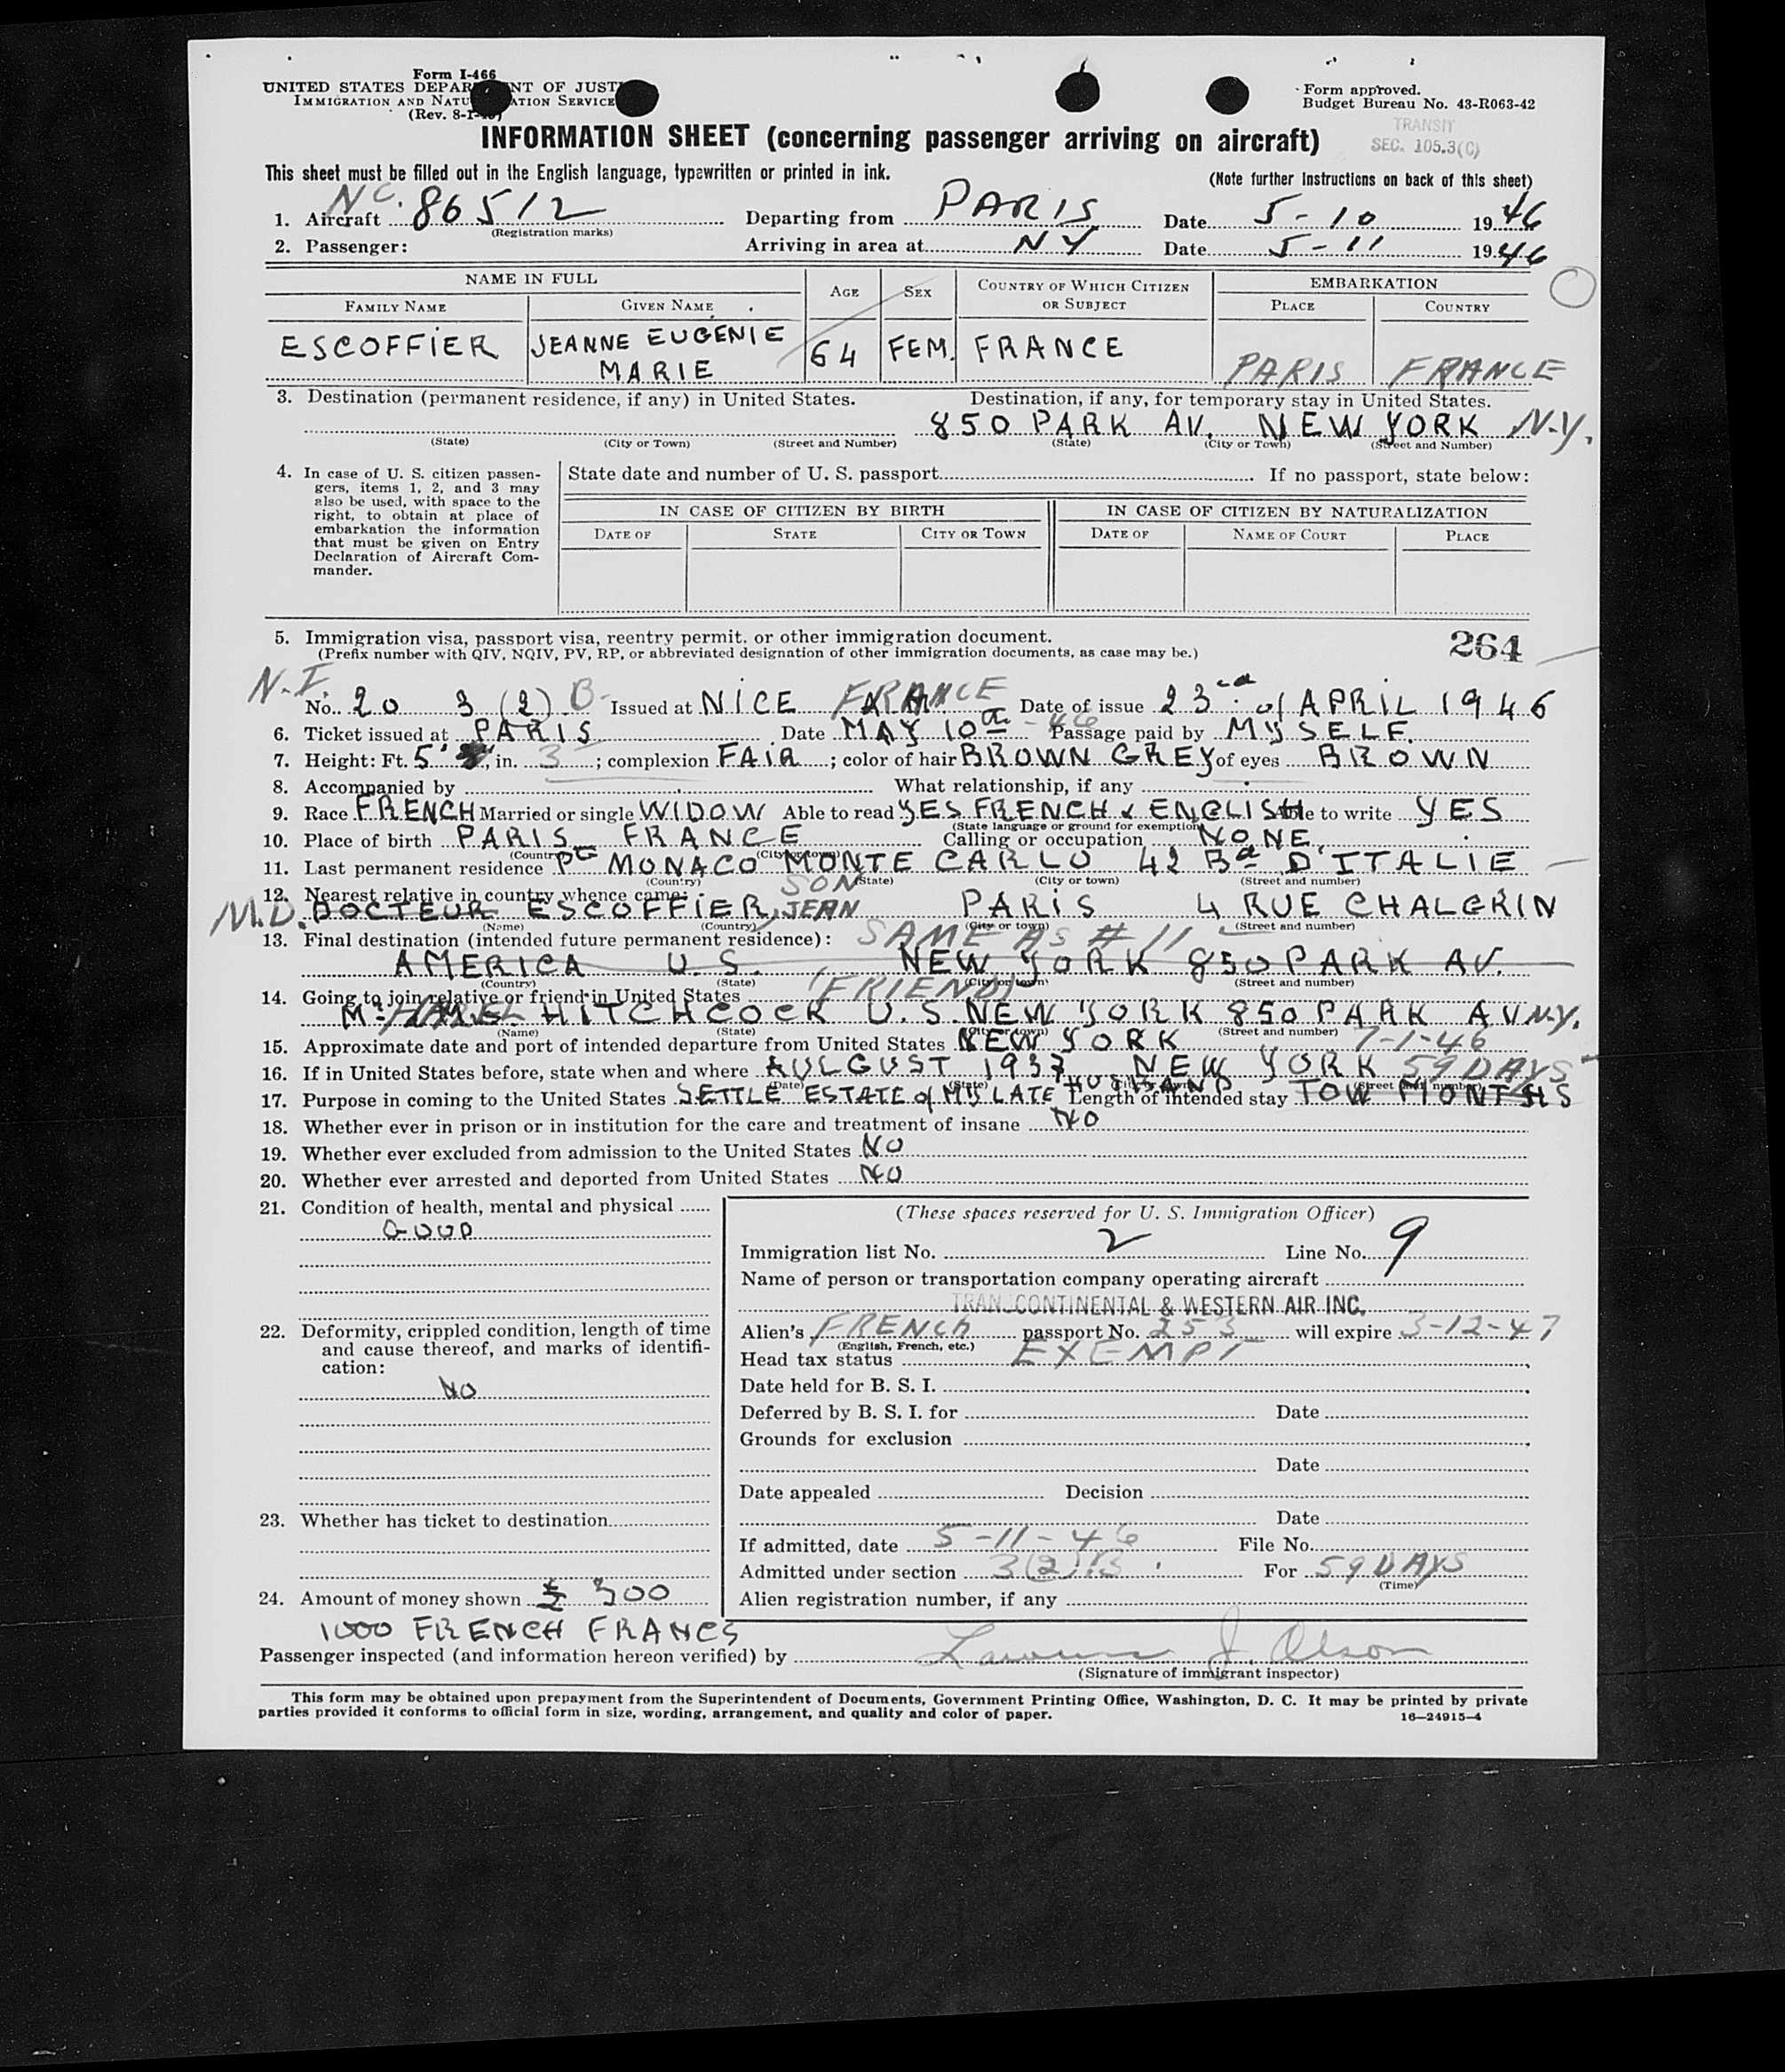 Form I-466
UNITED STATES DEPARTMENT OF JUSTICE
IMMIGRATION AND NATURALIZATION SERVICE
(Rev. 8-1-45)
Form approved.
Budget Bureau No. 43-R063-42
TRANSIT
SEC. 105.3(C)
INFORMATION SHEET (concerning passenger arriving on aircraft)
This sheet must be filled out in the English language, typewritten or printed in ink.
(Note further instructions on back of this sheet)
1. Aircraft NC. 86512 Departing from PARIS Date 5-10 1946
(Registration marks)
2. Passenger: Arriving in area at NY Date 5-11 1946
NAME IN FULL AGE SEX COUNTRY OF WHICH CITIZEN OR SUBJECT EMBARKATION
FAMILY NAME GIVEN NAME PLACE COUNTRY
ESCOFFIER JEANNE EUGENIE MARIE 64 FEM. FRANCE PARIS FRANCE
3. Destination (permanent residence, if any) in United States. Destination, if any, for temporary stay in United States.
850 PARK AV. NEW YORK N.Y.
(State) (City or Town) (Street and Number) (State) (City or Town) (Street and Number)
4. In case of U. S. citizen passengers, items 1, 2, and 3 may also be used, with space to the right, to obtain at place of embarkation the information that must be given on Entry Declaration of Aircraft Commander.
State date and number of U. S. passport If no passport, state below:
IN CASE OF CITIZEN BY BIRTH IN CASE OF CITIZEN BY NATURALIZATION
DATE OF STATE CITY OR TOWN DATE OF NAME OF COURT PLACE
5. Immigration visa, passport visa, reentry permit, or other immigration document.
264
(Prefix number with QIV, NQIV, PV, RP, or abbreviated designation of other immigration documents, as case may be.)
N.I.
No. 20 3 (2) B Issued at NICE FRANCE Date of issue 23rd of APRIL 1946
6. Ticket issued at PARIS Date MAY 10th -46 Passage paid by MYSELF.
7. Height: Ft. 5' , in. 3 ; complexion FAIR ; color of hair BROWN GREY of eyes BROWN
8. Accompanied by What relationship, if any
9. Race FRENCH Married or single WIDOW Able to read YES FRENCH & ENGLISH Able to write YES
(State language or ground for exemption)
10. Place of birth PARIS FRANCE Calling or occupation NONE.
(Country) (City or town)
11. Last permanent residence PG MONACO MONTE CARLO 42 Bd D'ITALIE
(Country) (State) (City or town) (Street and number)
12. Nearest relative in country whence came: SON
M.D. DOCTEUR ESCOFFIER, JEAN PARIS 4 RUE CHALGRIN
(Name) (Country) (City or town) (Street and number)
13. Final destination (intended future permanent residence): SAME AS # 11
AMERICA U.S. NEW YORK 850 PARK AV.
(Country) (State) (City or town) (Street and number)
14. Going to join relative or friend in United States (FRIEND)
HITCHCOCK U.S. NEW YORK 850 PARK AV N.Y.
(Name) (State) (City or town) (Street and number)
15. Approximate date and port of intended departure from United States NEW YORK 7-1-46
16. If in United States before, state when and where AULGUST 1937 NEW YORK 59 DAYS
(Date) (State) (City or town) (Street and number)
17. Purpose in coming to the United States SETTLE ESTATE of MY LATE HUSBAND Length of intended stay TOW MONTHS
18. Whether ever in prison or in institution for the care and treatment of insane NO
19. Whether ever excluded from admission to the United States NO
20. Whether ever arrested and deported from United States NO
21. Condition of health, mental and physical
GOOD
22. Deformity, crippled condition, length of time and cause thereof, and marks of identification:
NO
23. Whether has ticket to destination
24. Amount of money shown $ 300
1000 FRENCH FRANCS
(These spaces reserved for U. S. Immigration Officer)
Immigration list No. 2 Line No. 9
Name of person or transportation company operating aircraft
TRANSCONTINENTAL & WESTERN AIR INC.
Alien's FRENCH passport No. 253 will expire 3-12-47
(English, French, etc.)
Head tax status EXEMPT
Date held for B. S. I.
Deferred by B. S. I. for Date
Grounds for exclusion
Date
Date appealed Decision
Date
If admitted, date 5-11-46 File No.
Admitted under section 3(2) B For 59 DAYS
(Time)
Alien registration number, if any
Passenger inspected (and information hereon verified) by Lawrence J. Olson
(Signature of immigrant inspector)
This form may be obtained upon prepayment from the Superintendent of Documents, Government Printing Office, Washington, D. C. It may be printed by private
parties provided it conforms to official form in size, wording, arrangement, and quality and color of paper.
16—24915-4